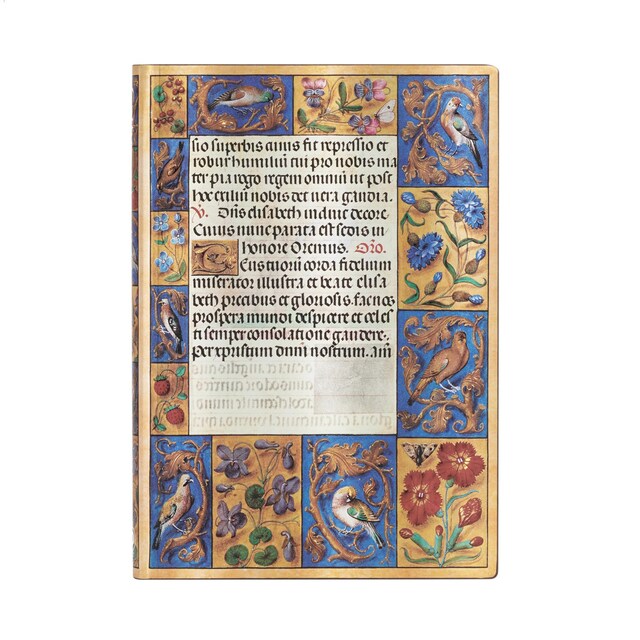 sio superbis auius fit repressio et
robur humiliũ tui pro nobis ma
ter pia rogo regem omniũ ut post
hoc exiliũ nobis det vera gaudia.
℣. elisabeth decore
Cuius nunc parata est sedis in
honore Oremus. Oro.
Deus tuorũ corda fidelium
miserator illustra et beate elisa
beth precibus et gloriosis fac nos
prospera mundi despicere et celes
ti semper consolatione gaudere.
Per xpristum dnm nostrum. am